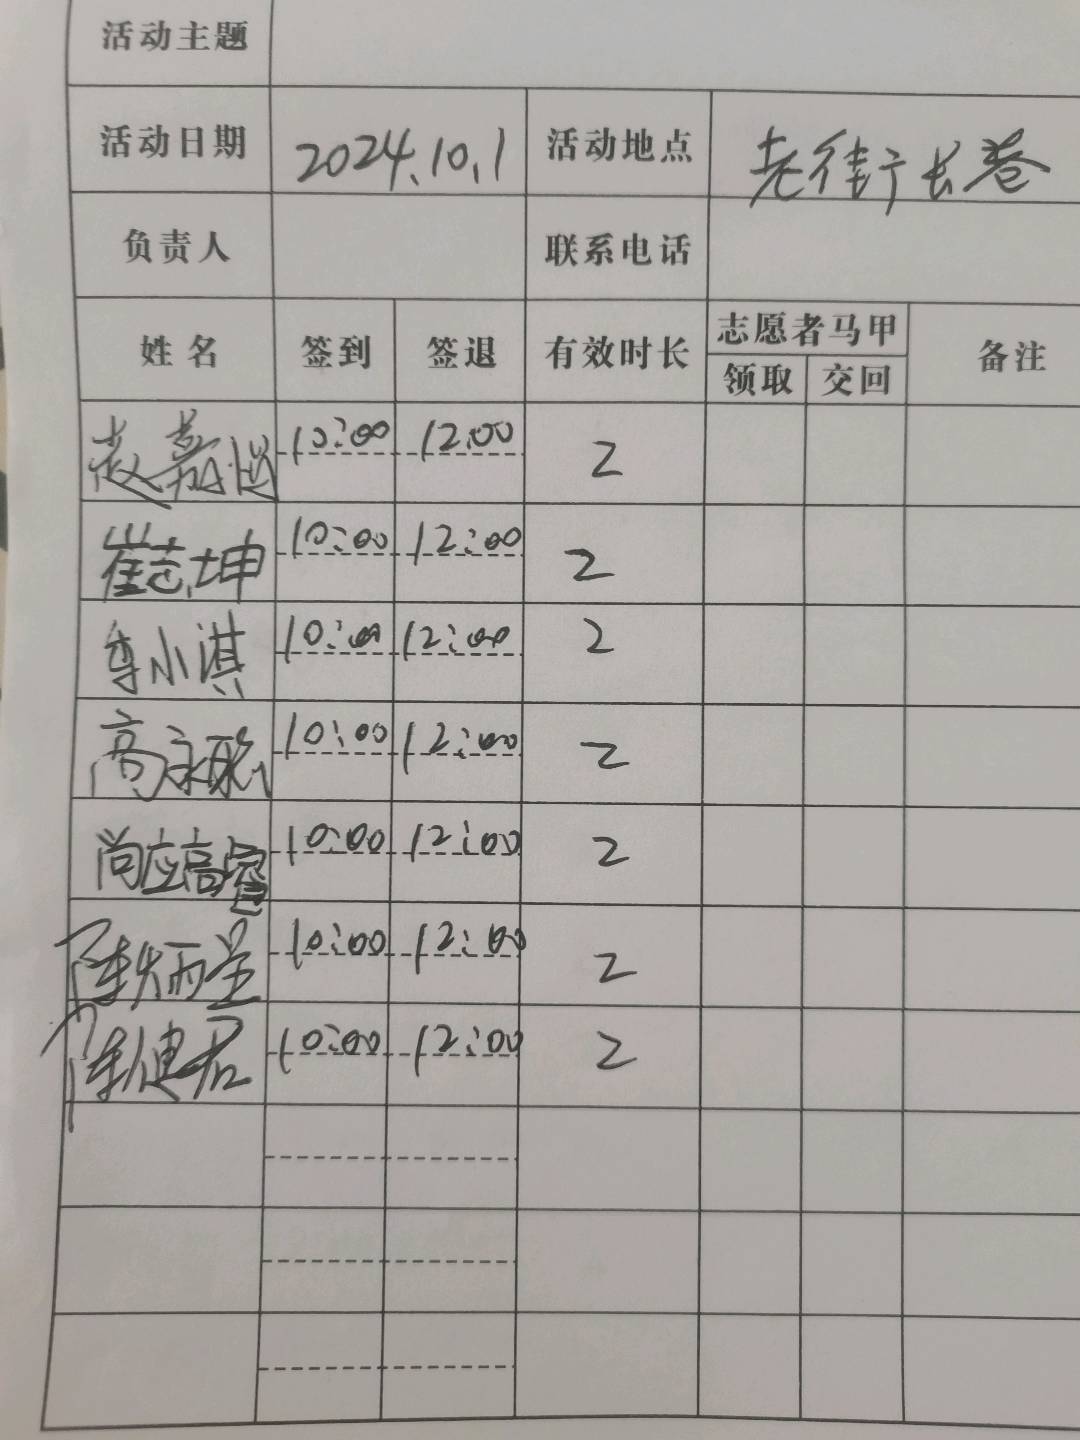 活动主题
活动日期 2024.10.1 活动地点 老街长卷
负责人 联系电话
姓名 签到 签退 有效时长 志愿者马甲 备注
领取 交回
赵嘉 10:00 12:00 2
崔志坤 10:00 12:00 2
李小淇 10:00 12:00 2
高永聪 10:00 12:00 2
尚应高睿 10:00 12:00 2
陈炳呈 10:00 12:00 2
陈健君 10:00 12:00 2